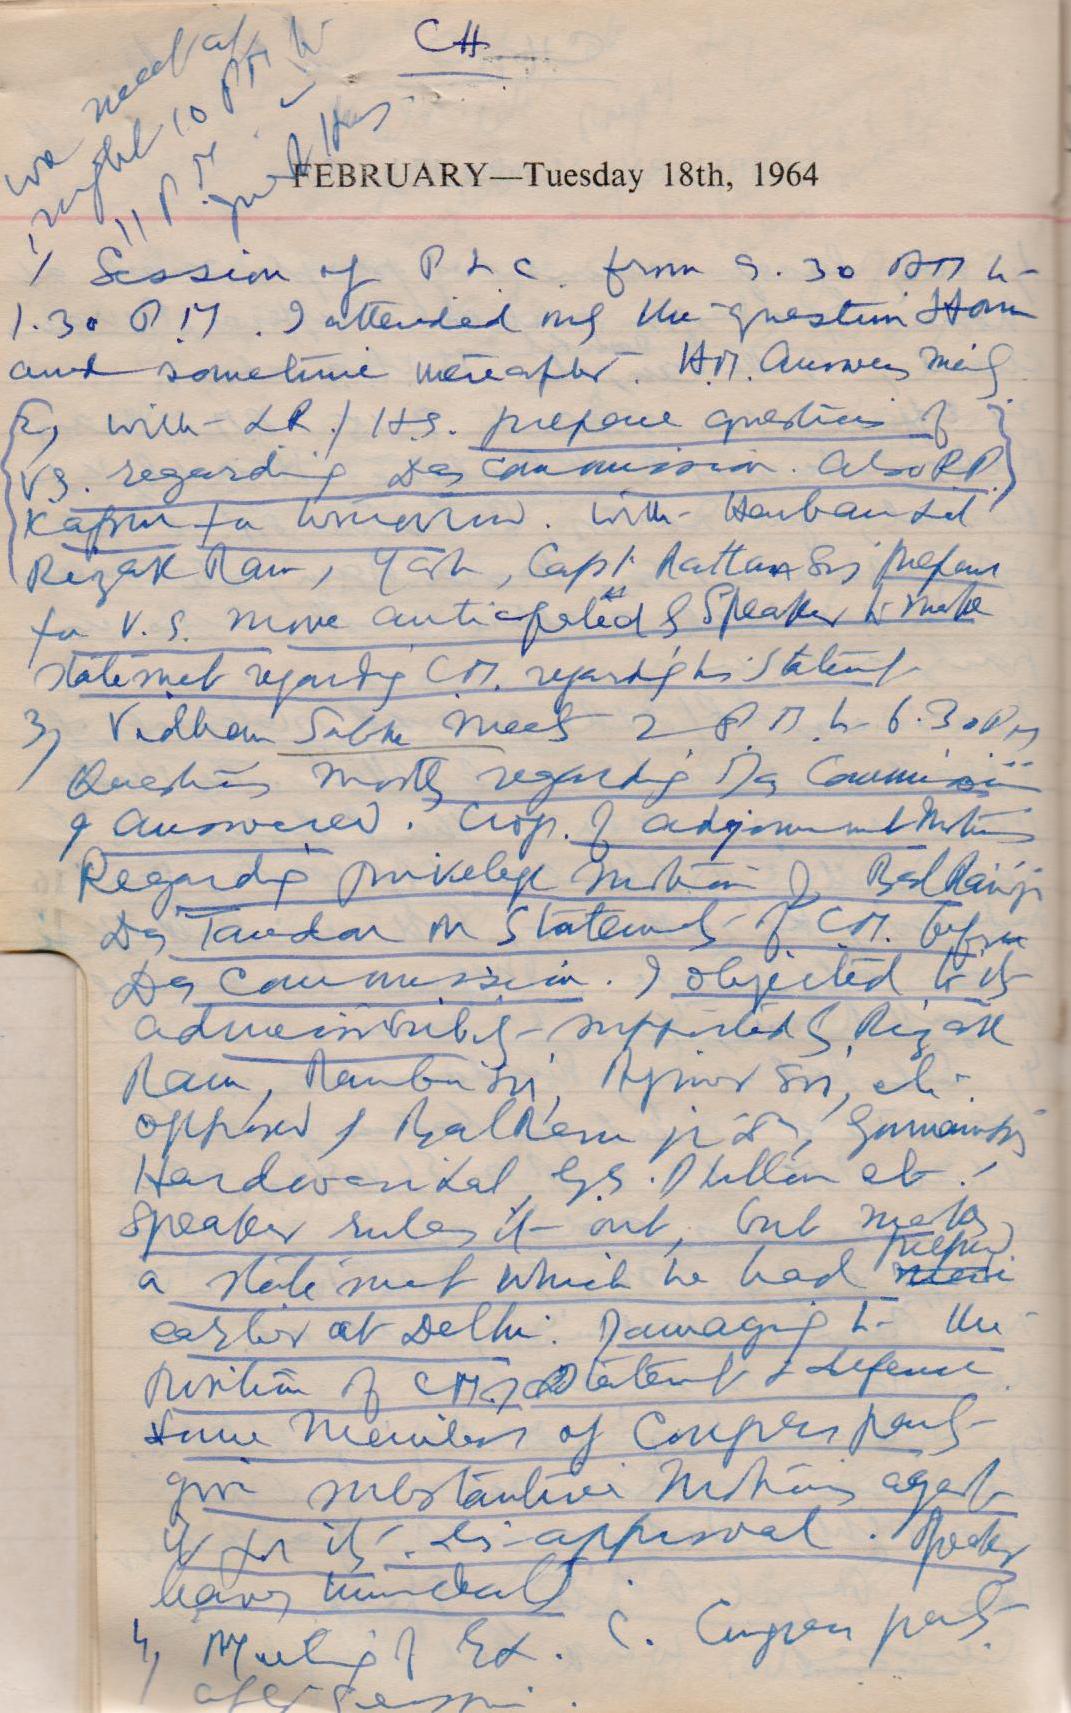 CH
we meet at
night 10 PM to
11 P.M.
FEBRUARY—Tuesday 18th, 1964
1) Session of P L C from 9.30 AM to
1.30 P.M. I attended only the question Hour
and sometime thereafter. H.M. Answers
2) with LR / H.S. prepare questions of
V.S. regarding Das Commission. Also R.P.
Kapur for tomorrow. with Harbans Lal
Rizak Ram, Yash, Capt Rattan Singh prepare
for V.S. move anticipated by Speaker to make
statement regarding CM. regarding his Statement
3) Vidhan Sabha meets 2 P.M. to 6.30 PM
Questions mostly regarding Das Commission
& answered. Crop of adjournment Motions
Regarding privilege motion of Balramji
Das Tandon on Statement of C.M. before
Das Commission. I objected to its
admissibility - supported by Rizak
Ram, Ranbir Singh, etc.
opposed by Balram ji Das,
Hardwari Lal, G.S. Dhillon etc.
Speaker rules it out, but makes
a statement which he had prepared
earlier at Delhi. Damaging to the
position of CM, Statement & defence
Some Members of Congress party
give substantive Motions against
it for its dis-approval. Speaker
leaves
4) Meeting of Ex. C. Congress party
after Session.